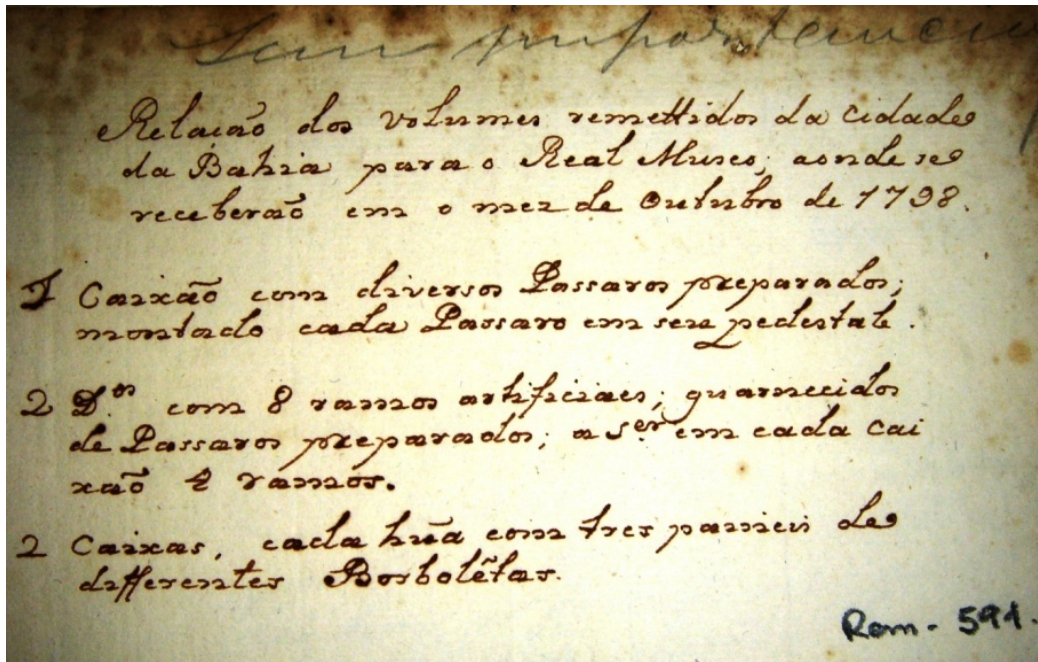 Sem importancia
Relação dos volumes remettidos da Cidade
da Bahia para o Real Museo; aonde se
receberão em o mez de Outubro de 1798.
1 Caixão com diversos Passaros preparados;
montado cada Passaro em seu pedestal.
2 D.os com 8 ramos artificiaes; guarnecidos
de Passaros preparados; a ser em cada cai
xão 4 ramos.
2 Caixas, cada hũa com tres paineis de
differentes Borbolêtas.
Rem - 591.